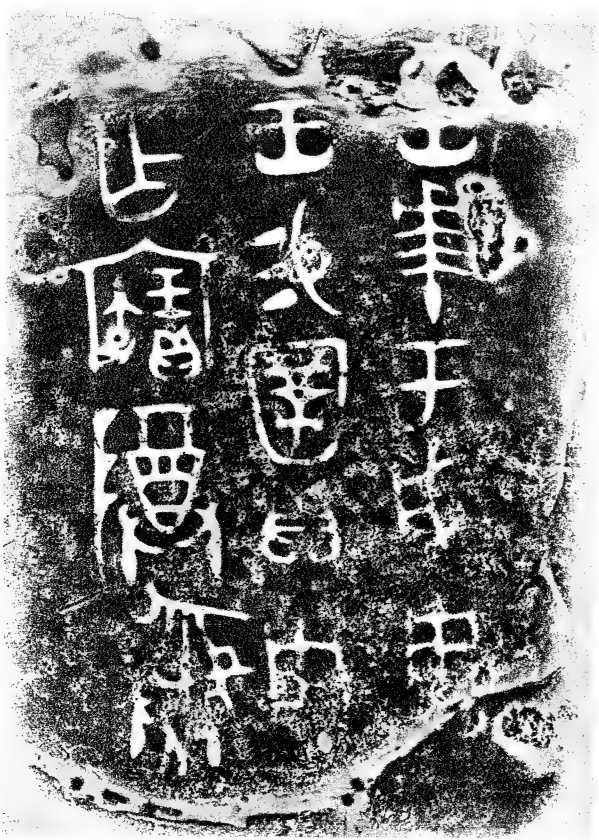 王𠦪于成周
王易圉貝用
乍寶𬯚彝